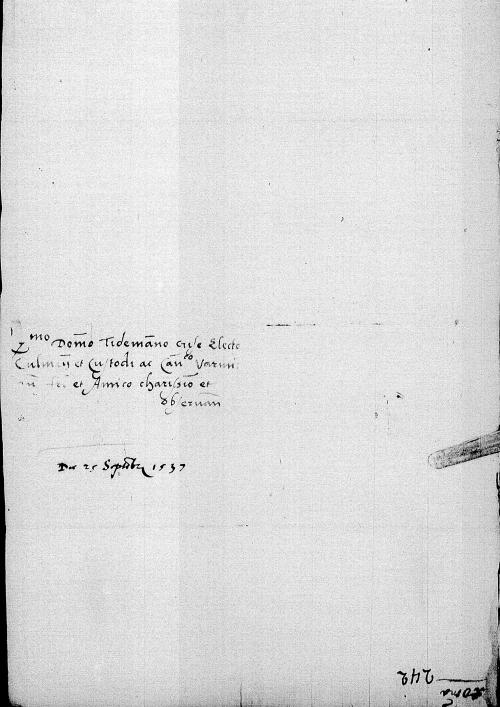 R^mo Domino Tidemano Gyse Electo
Culmen et Custodi ac Can^co Varmi
et Amico charissimo et
observan
25 Septebr 1537
242